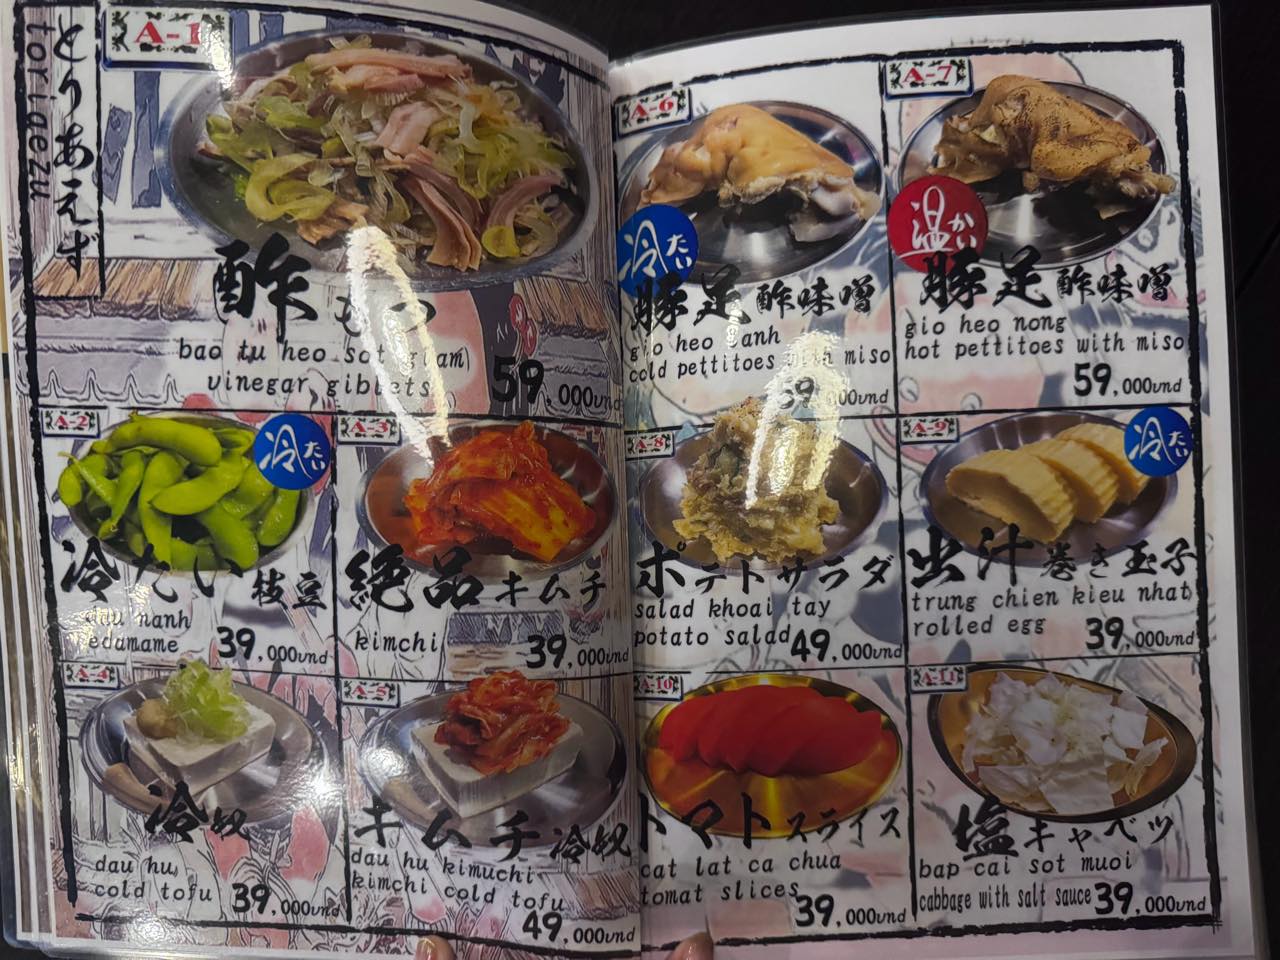 とりあえず
toriaezu
A-1
酢もつ
bao tu heo sot (giam)
vinegar giblets
59,000vnd
A-2
冷たい
冷たい枝豆
dau nanh
edamame
39,000vnd
A-3
絶品キムチ
kimchi
39,000vnd
A-4
冷奴
dau hu
cold tofu
39,000vnd
A-5
キムチ冷奴
dau hu kimuchi
kimchi cold tofu
49,000vnd
A-6
冷たい
豚足酢味噌
gio heo lanh
cold pettitoes with miso
59,000vnd
A-7
温かい
豚足酢味噌
gio heo nong
hot pettitoes with miso
59,000vnd
A-8
ポテトサラダ
salad khoai tay
potato salad
49,000vnd
A-9
冷たい
出汁巻き玉子
trung chien kieu nhat
rolled egg
39,000vnd
A-10
トマトスライス
cat lat ca chua
tomat slices
39,000vnd
A-11
塩キャベツ
bap cai sot muoi
cabbage with salt sauce
39,000vnd